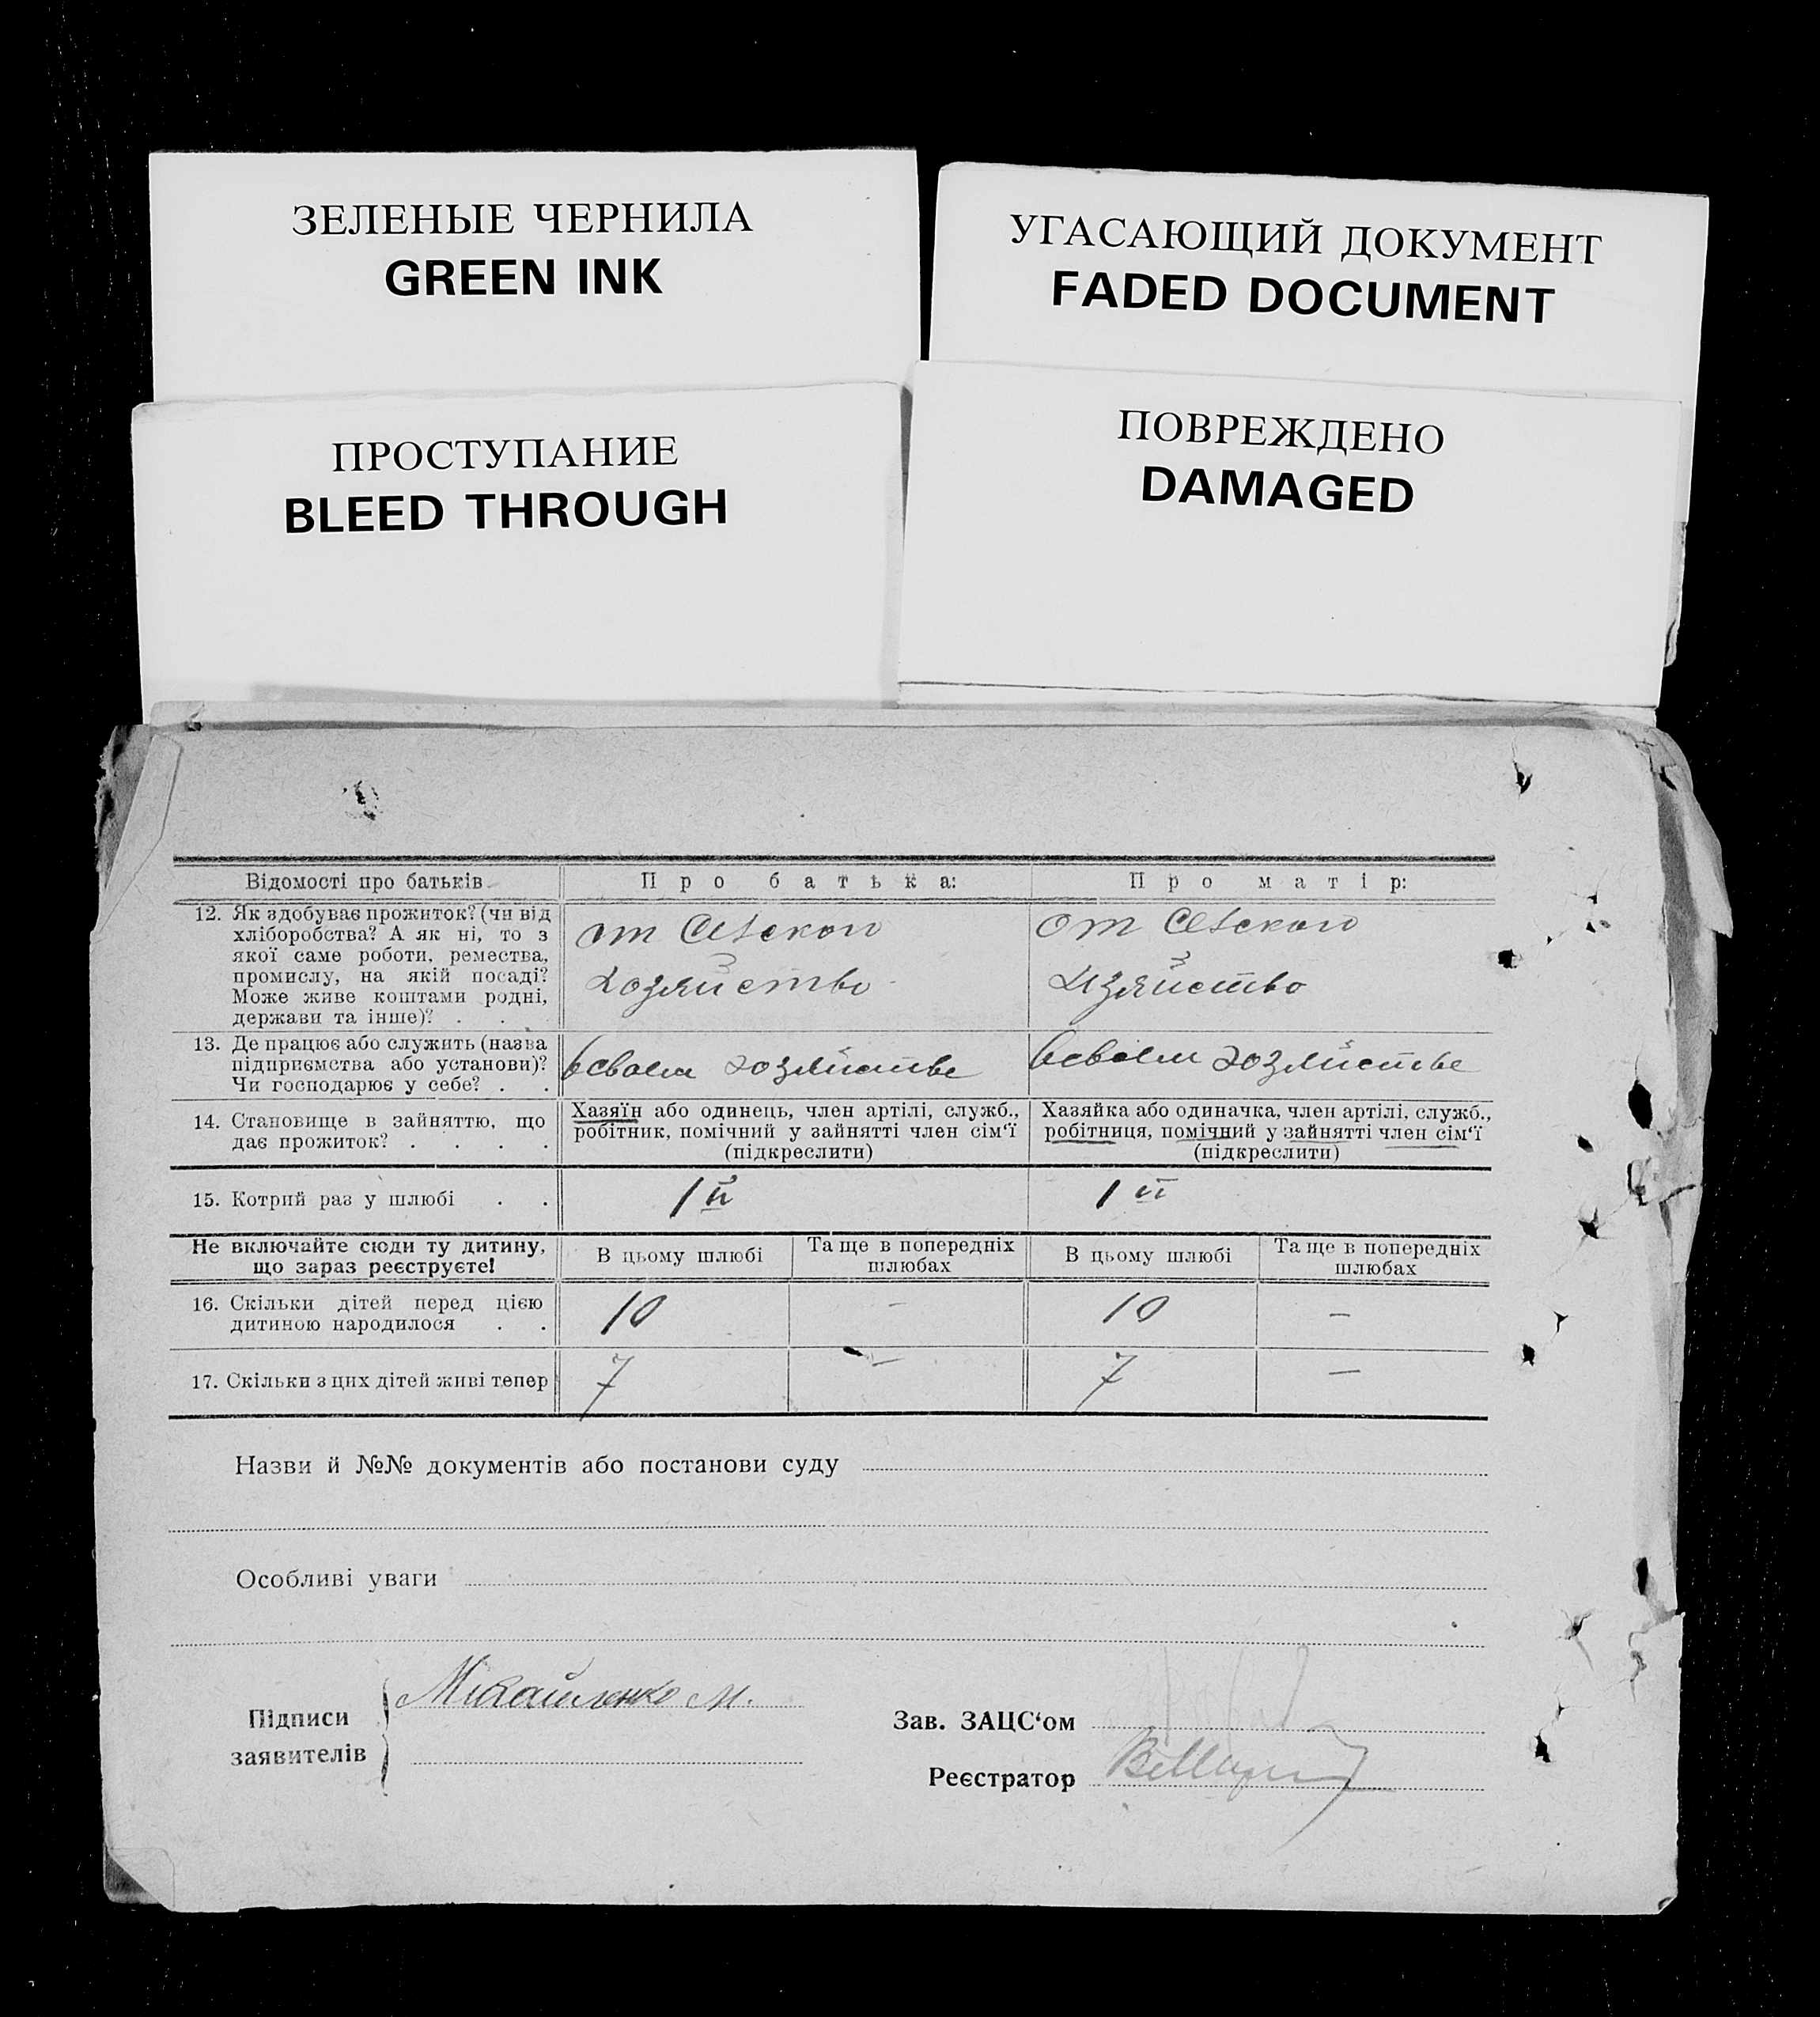 ЗЕЛЕНЫЕ ЧЕРНИЛА
GREEN INK
УГАСАЮЩИЙ ДОКУМЕНТ
FADED DOCUMENT
ПРОСТУПАНИЕ
BLEED THROUGH
ПОВРЕЖДЕНО
DAMAGED
Відомості про батьків
Про батька:
Про матір:
12. Як здобуває прожиток? (чи від
хліборобства? А як ні, то з
якої саме роботи, ремества,
промислу, на якій посаді?
Може живе коштами родні,
держави та інше)? . .
от Сельского
хозяйство
от Сельского
хозяйство
13. Де працює або служить (назва
підприємства або установи)?
Чи господарює у себе? . .
в своем хозяйстве
в своем хозяйстве
14. Становище в зайняттю, що
дає прожиток? . . . .
Хазяїн або одинець, член артілі, служб.,
робітник, помічний у зайнятті член сім‘ї
(підкреслити)
Хазяйка або одиначка, член артілі, служб.,
робітниця, помічний у зайнятті член сім‘ї
(підкреслити)
15. Котрий раз у шлюбі . .
1й
1й
Не включайте сюди ту дитину,
що зараз реєструєте!
В цьому шлюбі
Та ще в попередніх
шлюбах
В цьому шлюбі
Та ще в попередніх
шлюбах
16. Скільки дітей перед цією
дитиною народилося . .
10
—
10
—
17. Скільки з цих дітей живі тепер
7
—
7
—
Назви й №№ документів або постанови суду
Особливі уваги
Підписи
заявителів
Михайленко М.
Зав. ЗАЦС‘ом
Реєстратор